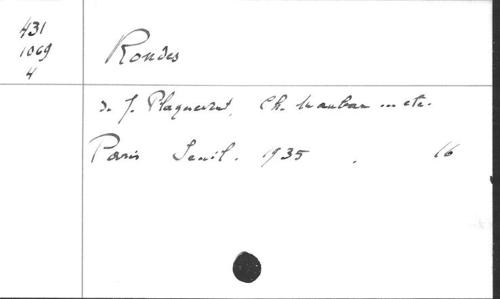 431
1069
4
Rondes
de J. Plaquevent, Ch. Mauban ... etc.
Paris Seuil. 1935. 16